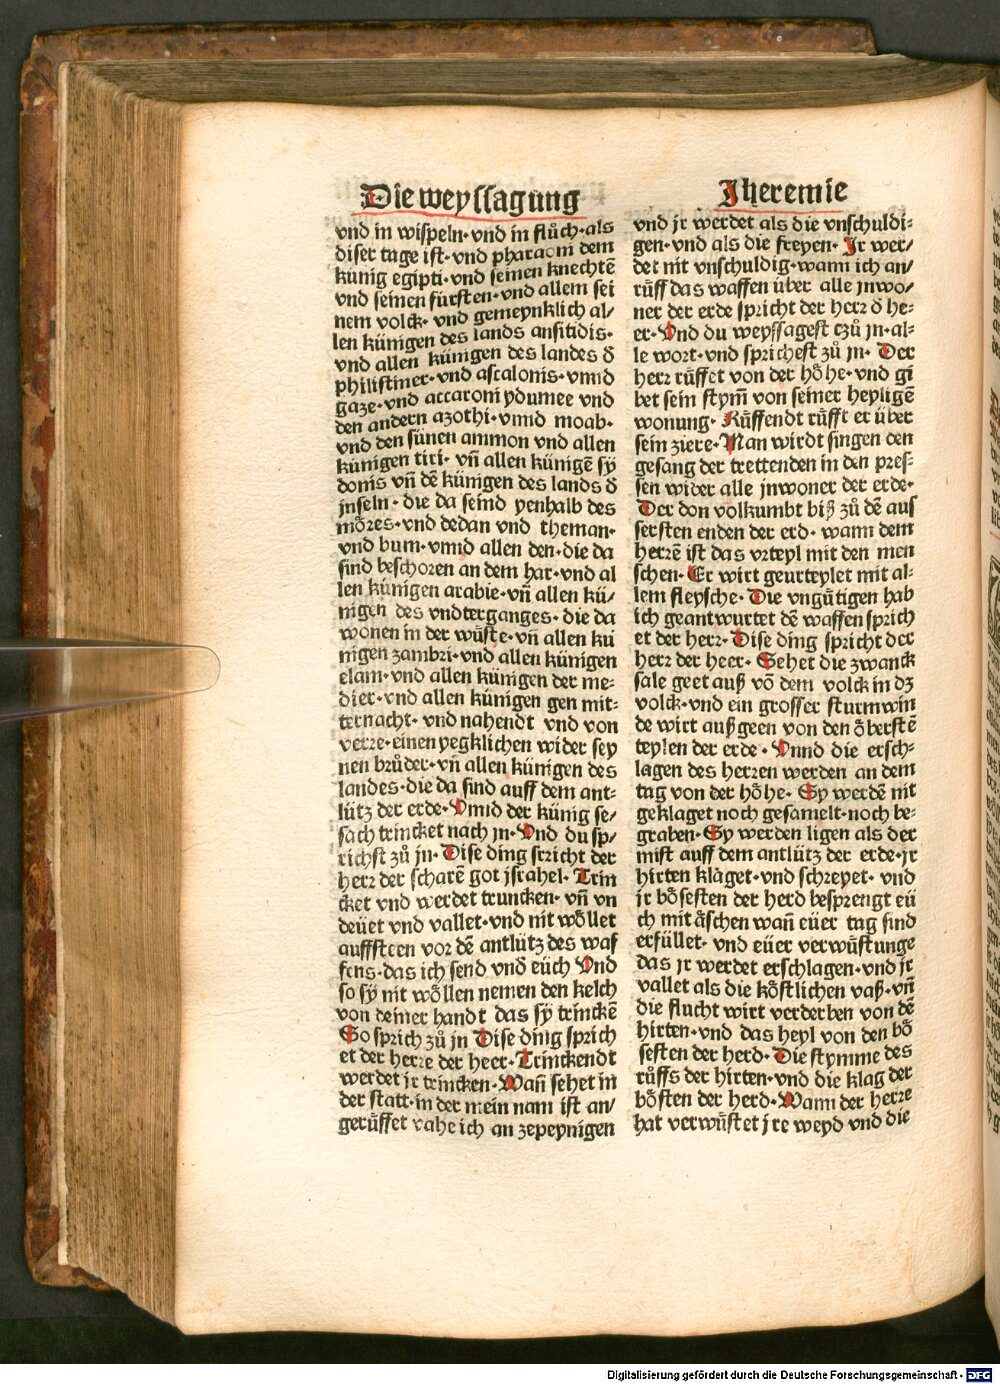 Die weyssagung
vnd in wispeln·vnd in flůch·als
diser tage ist·vnd pharaoni dem
künig egipti·vnd seinen knechtē
vnd seinen fürsten·vnd allem sei
nem volck·vnd gemeynklich al/
len künigen des lands ansitidis·
vnd allen künigen des landes d̄
philistiner·vnd ascalonis·vnnd
gaze·vnd accaroni ydumee vnd
den andern azothi·vnnd moab·
vnd den sünen ammon vnd allen
künigen tiri·vn̄ allen künigē sy
donis vn̄ dē künigen des lands d̄
jnseln·die da seind yenhalb des
möres·vnd dedan vnd theman·
vnd bum·vnnd allen den·die da
sind beschoren an dem har·vnd al
len künigen arabie·vn̄ allen kü/
nigen des vndterganges·die da
wonen in der wüste·vn̄ allen kü
nigen zambri·vnd allen künigen
elam·vnd allen künigen der me⸗
dier·vnd allen künigen gen mit⸗
ternacht·vnd nahendt vnd von
verre·einen yegklichen wider sey
nen brůder·vn̄ allen künigen des
landes·die da sind auff dem ant⸗
lütz der erde·Vnnd der künig se⸗
sach trincket nach jn·Vnd du sp/
richst zů jn·Dise ding spricht der
herr der scharē got jsrahel·Trin
cket vnd werdet truncken·vn̄ vn
deüet vnd vallet·vnd nit wöllet
auffsteen vor dē antlütz des waf
fens·das ich send vnd eüch Vnd
so sy nit wöllen nemen den kelch
von deiner handt das sy trinckē
So sprich zů jn Dise ding sprich
et der herre der heer·Trinckendt
werdet jr trincken·Wan̄ sehet in
der statt·in der mein nam ist an/
gerüffet vahe ich an zepeynigen
Jheremie
vnd jr werdet als die vnschuldi⸗
gen·vnd als die freyen·Jr wer/
det nit vnschuldig·wann ich an/
rüff das waffen über alle jnwo/
ner der erde spricht der herr d̄ he⸗
er·Vnd du weyssagest tzů jn·al⸗
le wort·vnd sprichest zů jn·Der
herr rüffet von der höhe·vnd gi
bet sein stym̄ von seiner heyligē
wonung·Rüffendt rüfft er über
sein ziere·Man wirdt singen den
gesang der trettenden in den pres⸗
sen wider alle jnwoner der erde·
Der don volkumbt biß zů dē aus
sersten enden der erd·wann dem
herrē ist das vrteyl mit den men
schen·Er wirt geurteylet mit al⸗
lem fleysche·Die vngütigen hab
ich geantwurtet dē waffen sprich
et der herr·Dise ding spricht der
herr der heer·Sehet die zwanck
sale geet auß vō dem volck in dz
volck·vnd ein grosser sturmwin
de wirt außgeen von den öberstē
teylen der erde·Vnnd die ersch⸗
lagen des herren werden an dem
tag von der höhe·Sy werdē nit
geklaget noch gesamelt·noch be⸗
graben·Sy werden ligen als der
mist auff dem antlütz der erde·jr
hirten klaget·vnd schreyet·vnd
jr bösesten der herd besprengt eü
ch mit äschen wan̄ eüer tag sind
erfüllet·vnd eüer verwüstunge
das jr werdet erschlagen·vnd jr
vallet als die köstlichen vaß·vn̄
die flucht wirt verderben von dē
hirten·vnd das heyl von den bö
sesten der herd·Die stymme des
rüffs der hirten·vnd die klag der
bösten der herd·Wann der herre
hat verwüstet jre weyd vnd die
Digitalisierung gefördert durch die Deutsche Forschungsgemeinschaft - DFG